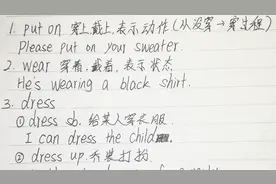 1. put on 穿上,戴上,表示动作(从没穿→穿过程)
Please put on your sweater.
2. wear 穿着,戴着,表示状态
He's wearing a black shirt.
3. dress
① dress sb. 给某人穿衣服
I can dress the child
② dress up 乔装打扮